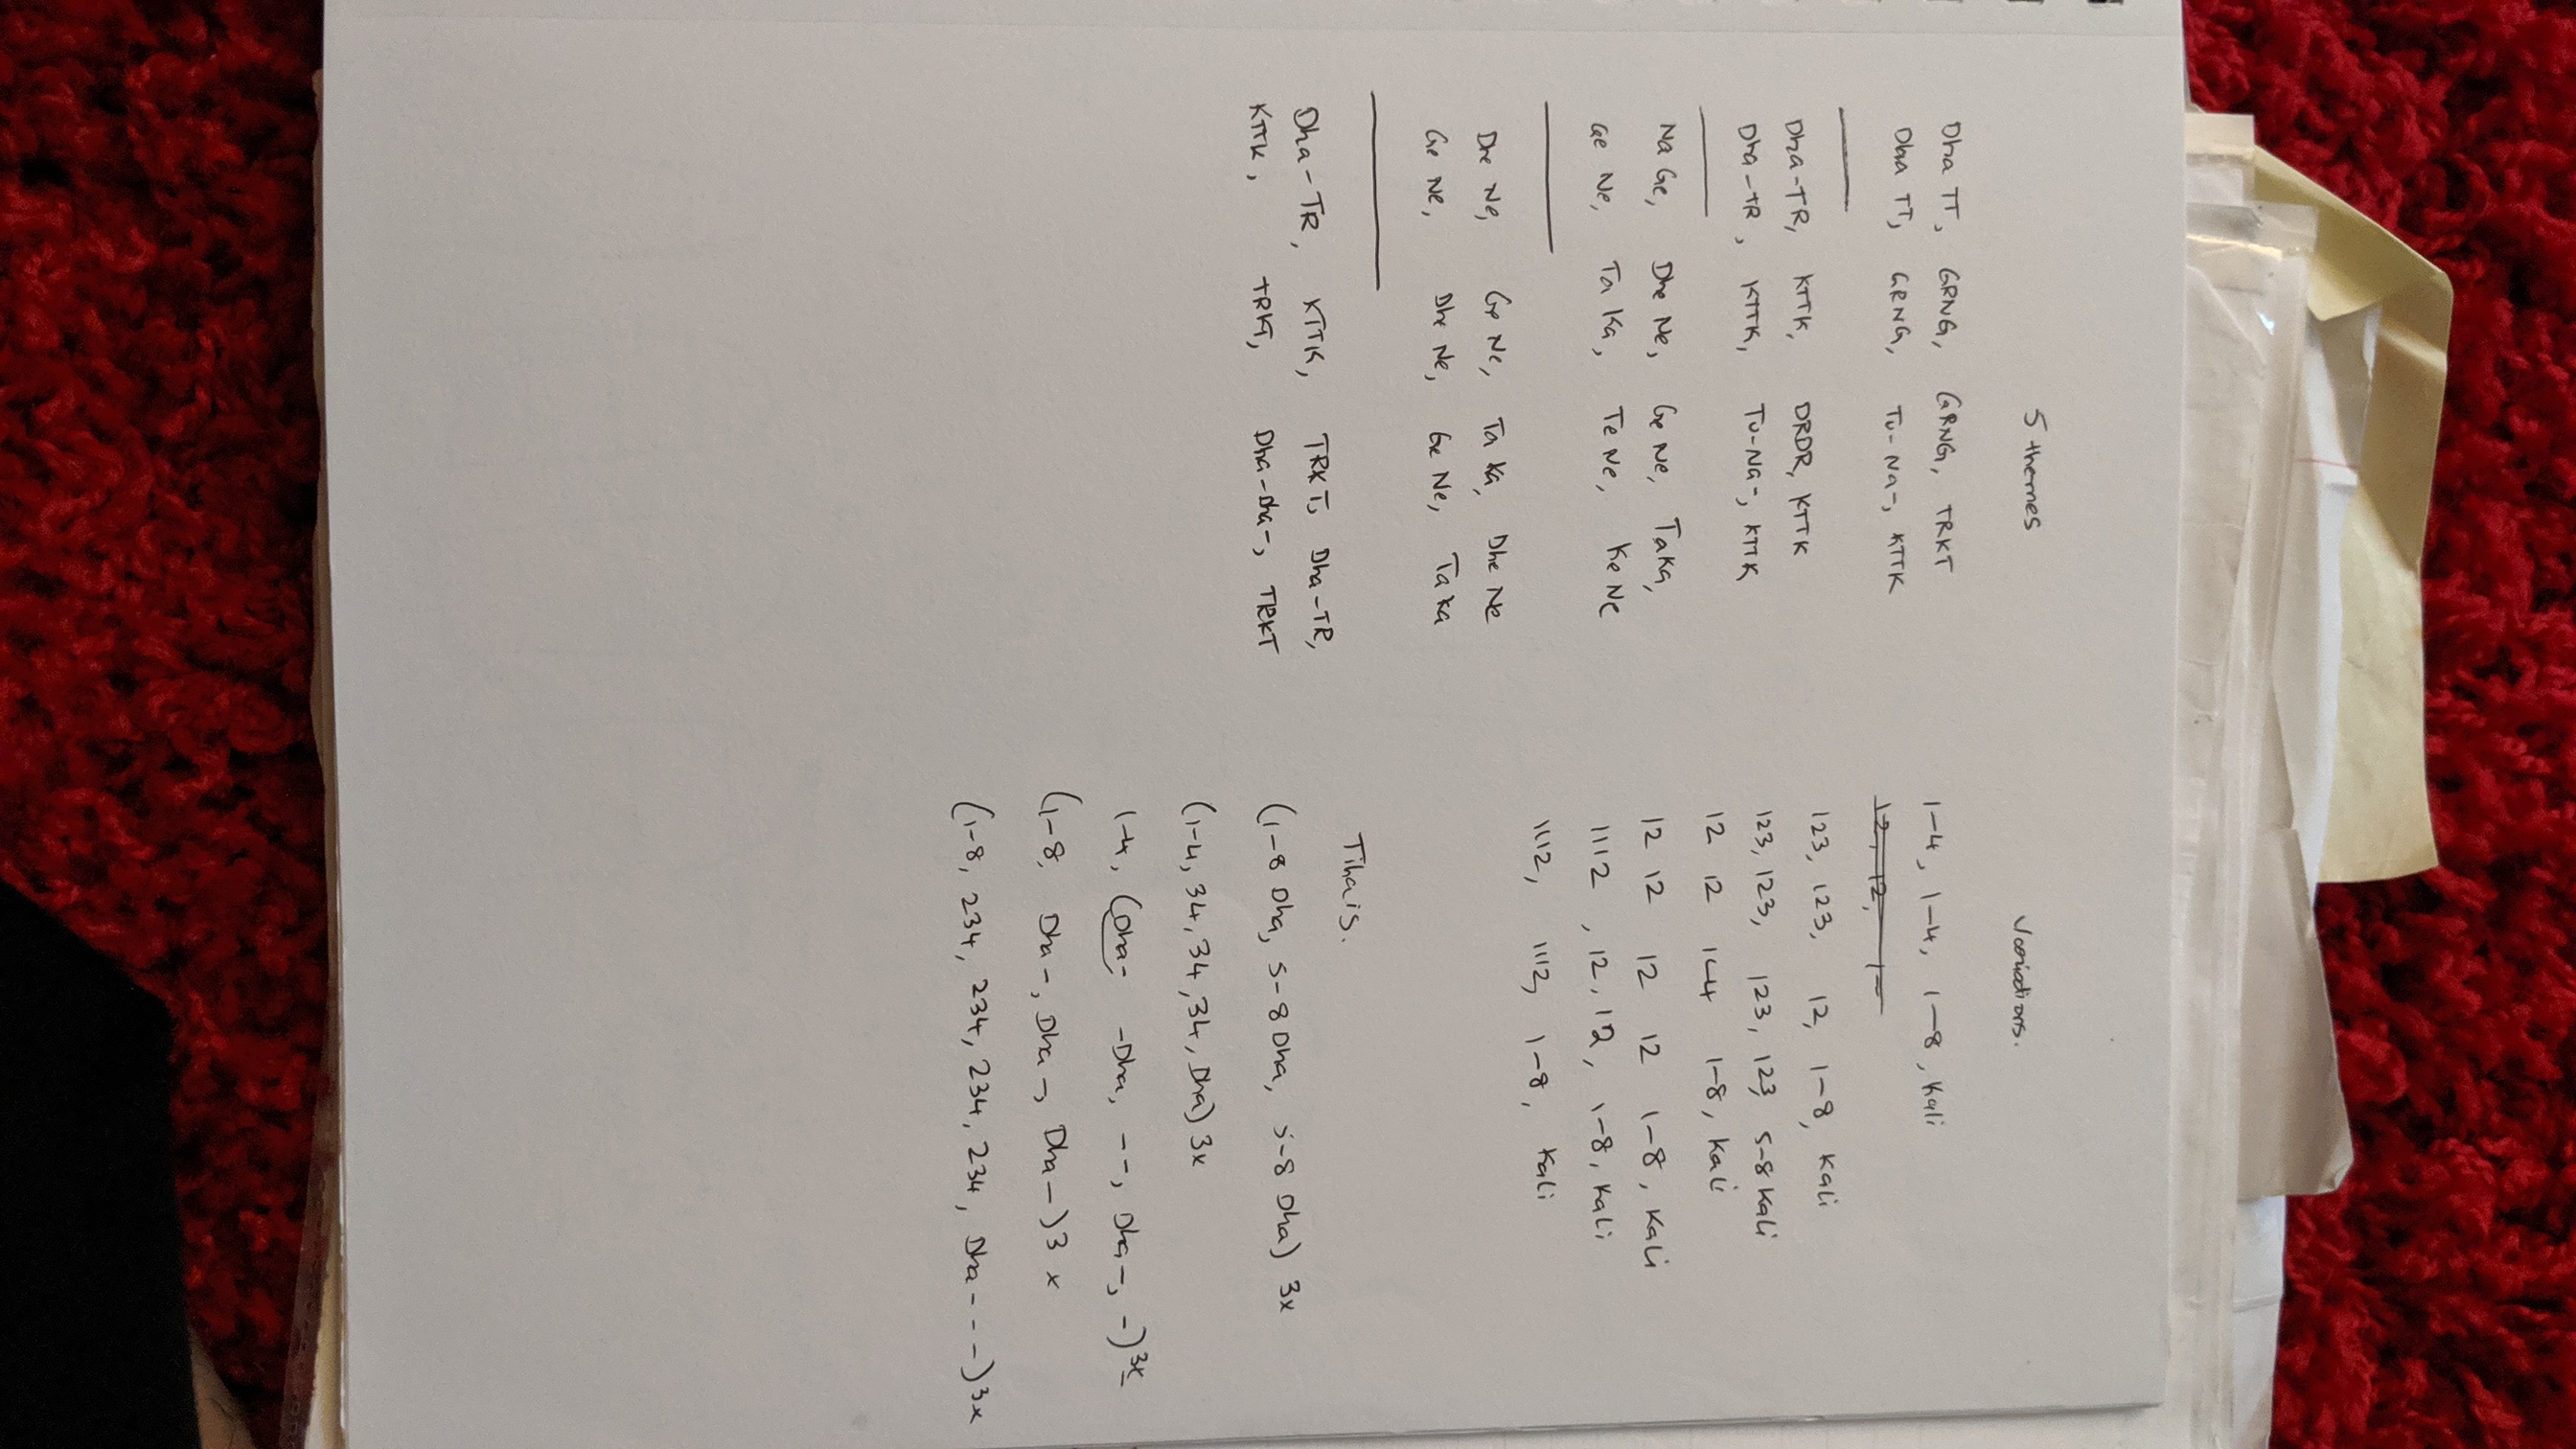 5 themes
Dha TT, GRNG, GRNG, TRKT
Dha TT, GRNG, Tu-Na-, KTTK
Dha-TR, KTTK, DRDR, KTTK
Dha-TR, KTTK, Tu-Na-, KTTK
Na Ge, Dhe Ne, Ge Ne, TaKa,
Ge Ne, Ta Ka, Te Ne, Ke Ne
Dhe Ne, Ge Ne, Ta Ka, Dhe Ne
Ge Ne, Dhe Ne, Ge Ne, Ta Ka
Dha-TR, KTTK, TRKT, Dha-TR,
KTTK, TRKT, Dha-Dha-, TRKT
Variations.
1-4, 1-4, 1-8, Kali
12, 12, 1-
123, 123, 12, 1-8, Kali
123, 123, 123, 123 5-8 Kali
12 12 1-4 1-8, Kali
12 12 12 12 1-8, Kali
1112, 12, 12, 1-8, Kali
1112, 1112, 1-8, Kali
Tihais.
(1-8 Dha, 5-8 Dha, 5-8 Dha) 3x
(1-4, 34, 34, 34, Dha) 3x
1-4, (Dha- -Dha, --, Dha-, -) 3x
(1-8, Dha-, Dha-, Dha-) 3x
(1-8, 234, 234, 234, 234, Dha---) 3x